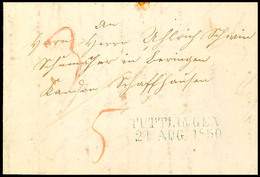 An
Herrn Herrn Uhlrich Schwin
Schumacher in Beringen
Kanton Schaffhausen
3
5
TUTTLINGEN
24 AUG. 1850